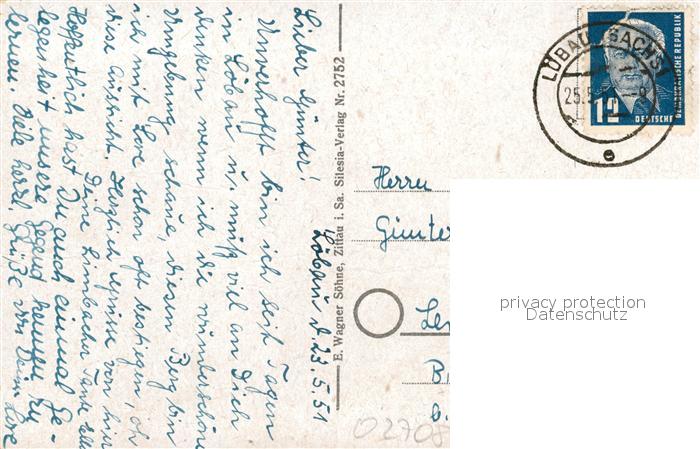 Löbau d 23.5.51
Lieber Günter!
Unverhofft bin ich seit Tagen
in Löbau u. muß viel an Dich
denken wenn ich die wunderschöne
Umgebung schaue, diesen Berg bin
ich mit Lore schon oft bestiegen, oh
diese Aussicht. Herzlich Grüsse von hier
Deine Limbacher Tante
Hoffentlich hast Du auch einmal Ge-
legenheit unsere Gegend kennen zu
lernen. Viele herzl. Grüße von Deiner Lore
E. Wagner Söhne, Zittau i. Sa. Silesia-Verlag Nr. 2752
Herrn
Günte
LÖBAU (SACHS)
DEUTSCHE
DEMOKRATISCHE REPUBLIK
12
e
privacy protection
Datenschutz
02708